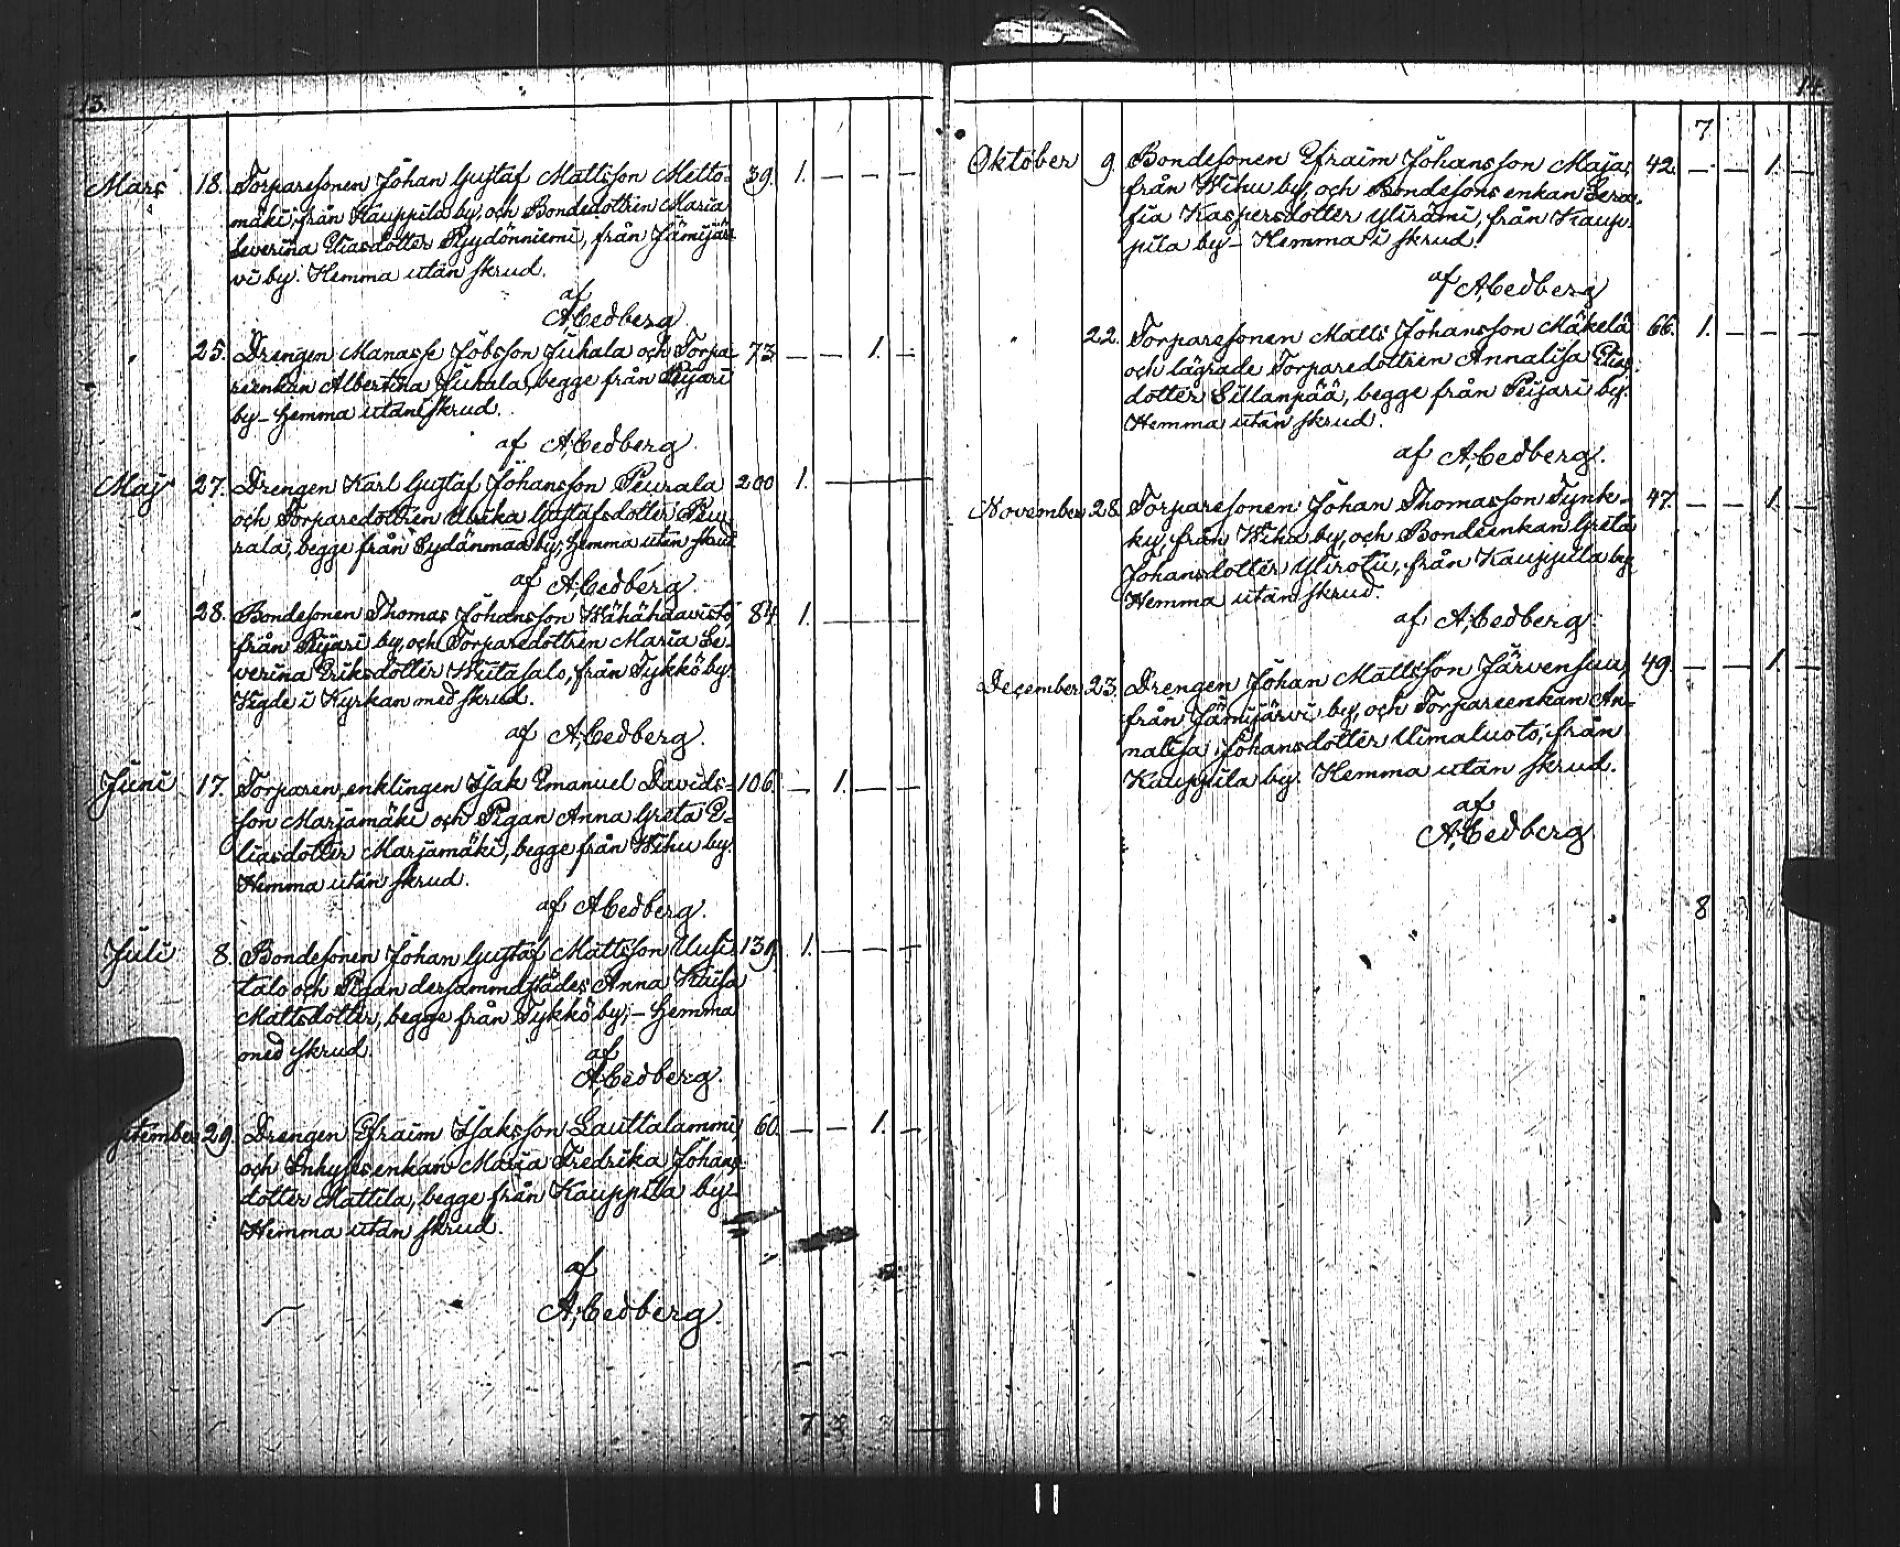 13.
Mars 18. Torparesonen Johan Gustaf Mattsson Metto- 39. 1. — — —
mäki, från Kauppila by, och Bondedottren Maria
Severina Eliasdotter Pyydönniemi, från Jämijär-
vi by. Hemma utan skrud.
af
A. Cedberg
" 25. Drengen Manasse Jobsson Juhala och Torpa- 73. — — 1. —
reenkan Albertina Juhala, begge från Peijari
by – Hemma utan skrud.
af A. Cedberg.
Maj 27. Drengen Karl Gustaf Johansson Peurala 200 1. — — —
och Torparedottren Ulrika Gustafsdotter Peu-
rala, begge från Sydänmaa by; Hemma utan skrud
af A. Cedberg.
" 28. Bondesonen Thomas Johansson Wähähaavisto 84 1. — — —
från Peijari by, och Torparedottren Maria Se-
verina Eriksdotter Wiitasalo, från Tykkö by.
Vigde i Kyrkan med skrud.
af A. Cedberg.
Juni 17. Torparen, enklingen Isak Emanuel Davids- 106. — 1. — —
son Marjamäki och Pigan Anna Greta E-
liasdotter Marjamäki, begge från Wihu by.
Hemma utan skrud.
af A. Cedberg.
Juli 8. Bondesonen Johan Gustaf Mattsson Uusi- 139. 1. — — —
talo och Pigan dersammastädes Anna Kaisa
Mattsdotter, begge från Tykkö by; – Hemma
med skrud.
af
A. Cedberg.
ptember 29. Drengen Efraim Isaksson Lauttalammi, 60. — — 1. —
och Inhysesenkan Maria Fredrika Johans-
dotter Mattila, begge från Kauppila by.
Hemma utan skrud.
af
A. Cedberg.
7
14.
7
Oktober 9. Bondesonen Efraim Johansson Maja, 42. — — 1. —
från Wihu by, och Bondesons enkan Sera-
fia Kaspersdotter Ylirämi, från Kaup-
pila by – Hemma i skrud.
af A. Cedberg
" 22. Torparesonen Matts Johansson Mäkelä 66. 1. — — —
och lägrade Torparedottren Annalisa Elias-
dotter Sillanpää, begge från Peijari by.
Hemma utan skrud.
af A. Cedberg.
November 28. Torparesonen Johan Thomasson Tynk- 47. — — 1. —
ky, från Wihu by, och Bondeenkan Greta
Johansdotter Ylirotu, från Kauppila by
Hemma utan skrud.
af A. Cedberg
December 23. Drengen Johan Mattsson Järvensuu, 49. — — 1. —
från Jämijärvi by, och Torpareenkan An-
nalisa Johansdotter Uimaluoto, från
Kauppila by. Hemma utan skrud.
af
A. Cedberg
8
11